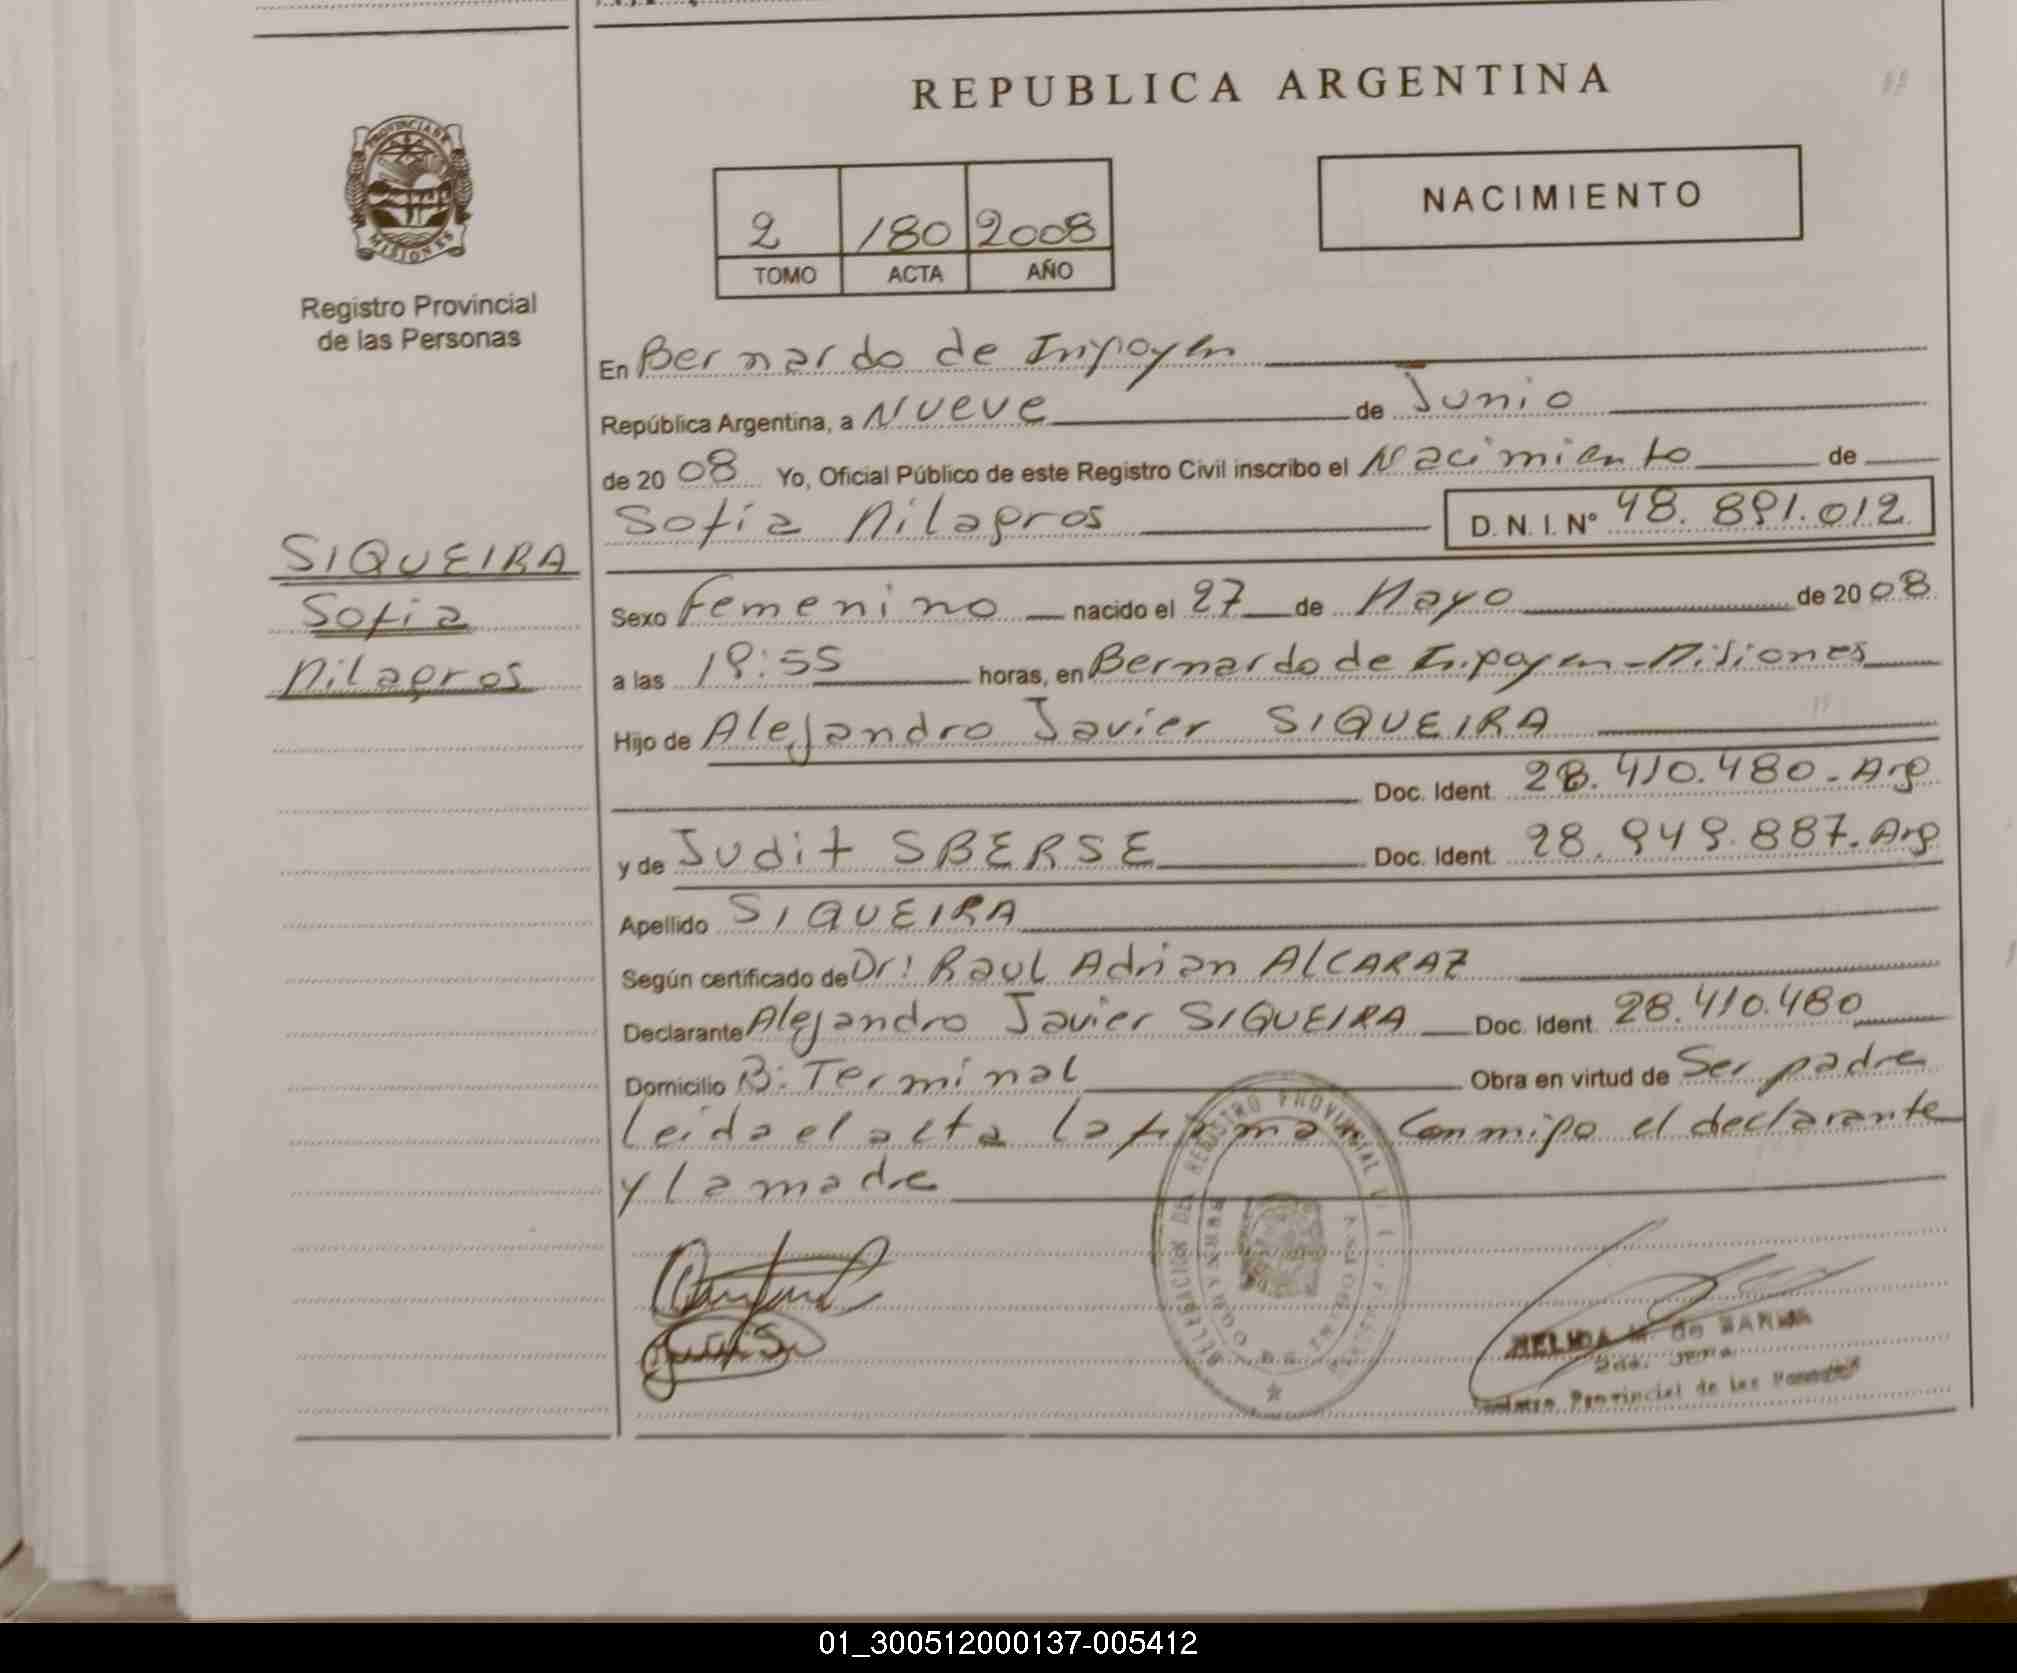 REPUBLICA ARGENTINA
PROVINCIA DE
MISIONES
Registro Provincial
de las Personas
2 180 2008
TOMO ACTA AÑO
NACIMIENTO
En Bernardo de Irigoyen
República Argentina, a Nueve de Junio
de 2008 Yo, Oficial Público de este Registro Civil inscribo el Nacimiento de
Sofia Milagros D. N. I. N° 48.891.012
SIQUEIRA
Sofia
Milagros
Sexo Femenino nacido el 27 de Mayo de 2008
a las 19:55 horas, en Bernardo de Irigoyen - Misiones
Hijo de Alejandro Javier SIQUEIRA
Doc. Ident. 28.410.480. Arg
y de Judit SBERSE Doc. Ident. 28.949.887. Arg
Apellido SIQUEIRA
Según certificado de Dr: Raul Adrian ALCARAZ
Declarante Alejandro Javier SIQUEIRA Doc. Ident. 28.410.480
Domicilio B: Terminal Obra en virtud de Ser padre
Leida el acta la firman Conmigo el declarante
y la madre
DELEGACION DEL REGISTRO PROVINCIAL
NELIDA M. de
Provincial de las Personas
01_300512000137-005412